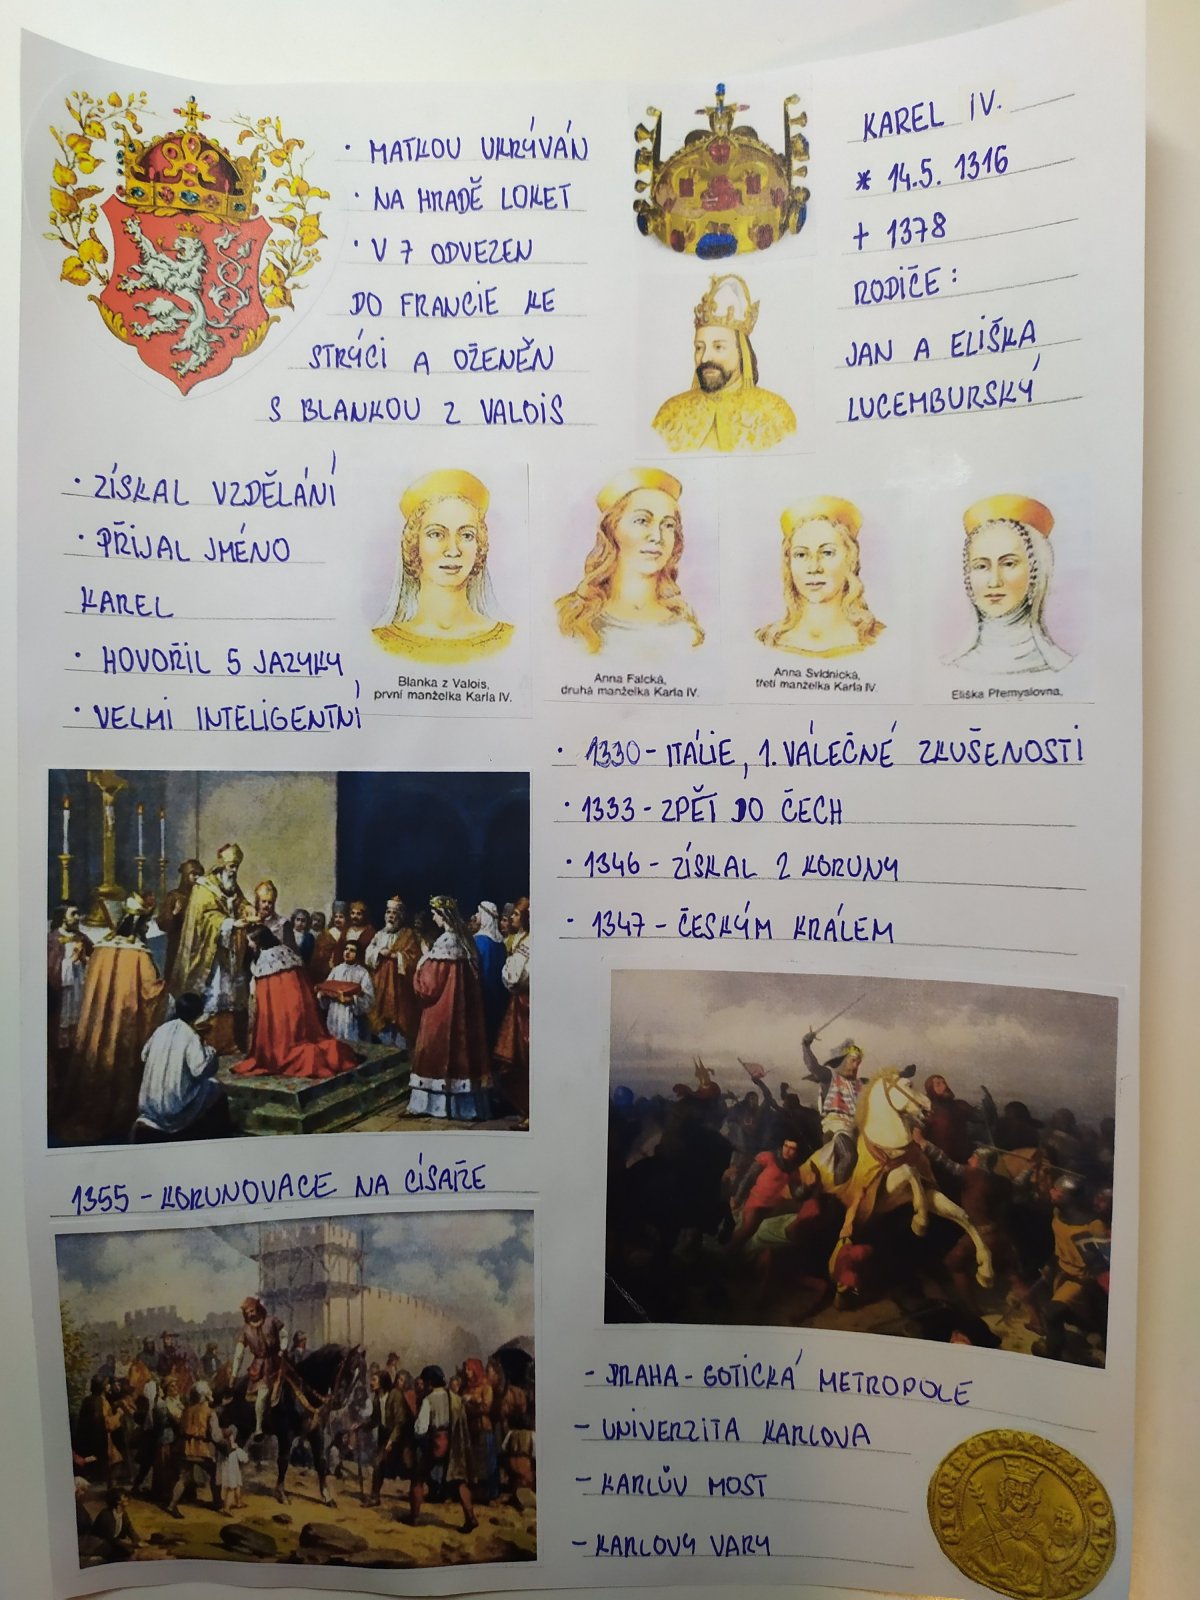 KAREL IV.
* 14.5. 1316
† 1378
RODIČE:
JAN A ELIŠKA
LUCEMBURSKÝ
· MATKOU UKRÝVÁN
· NA HRADĚ LOKET
· V 7 ODVEZEN
DO FRANCIE KE
STRÝCI A OŽENĚN
S BLANKOU Z VALOIS
· ZÍSKAL VZDĚLÁNÍ
· PŘIJAL JMÉNO
KAREL
· HOVOŘIL 5 JAZYKY
· VELMI INTELIGENTNÍ
Blanka z Valois,
první manželka Karla IV.
Anna Falcká,
druhá manželka Karla IV.
Anna Svídnická,
třetí manželka Karla IV.
Eliška Přemyslovna,
· 1330 - ITÁLIE, 1. VÁLEČNÉ ZKUŠENOSTI
· 1333 - ZPĚT DO ČECH
· 1346 - ZÍSKAL 2 KORUNY
· 1347 - ČESKÝM KRÁLEM
1355 - KORUNOVACE NA CÍSAŘE
- PRAHA - GOTICKÁ METROPOLE
- UNIVERZITA KARLOVA
- KARLŮV MOST
- KARLOVY VARY